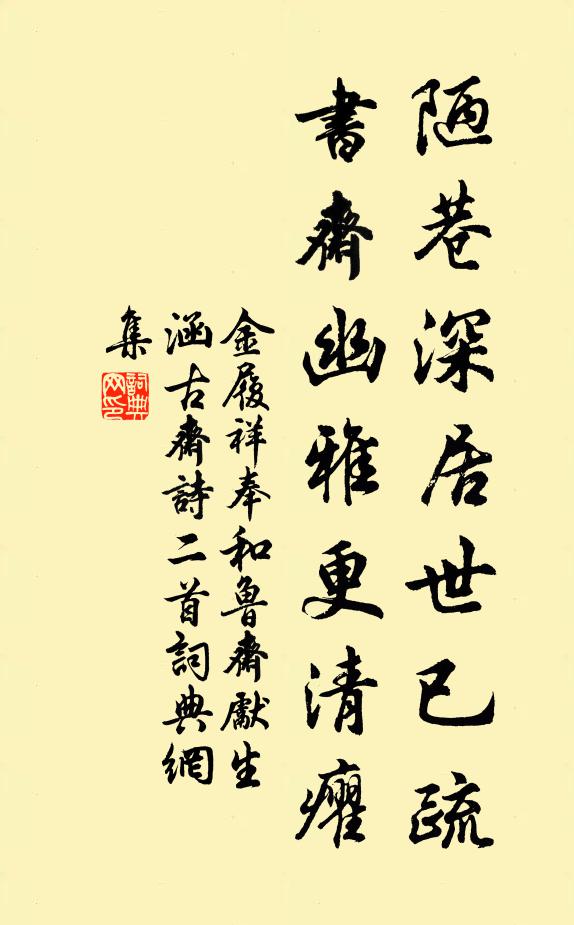 陋巷深居世已疏
書齋幽雅更清癯
金履祥奉和魯齋獻生
涵古齋詩二首詞典網
集
詞典
网印